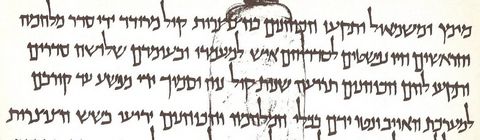 מימין ומשמאול ותקעו הכוהנים בחצוצרות קול מרודד ידי סדר מלחמה
והראשים היו נפשטים לסדריהם איש למעמדו ובעומדם שלושה סדרים
ותקעו להם הכוהנים תרועה שנית קול נוח וסמוך ידי מפשע עד קורבם
למערכת האויב ונטו ידם בכלי המלחמה והכוהנים יריעו בשש חצוצרות